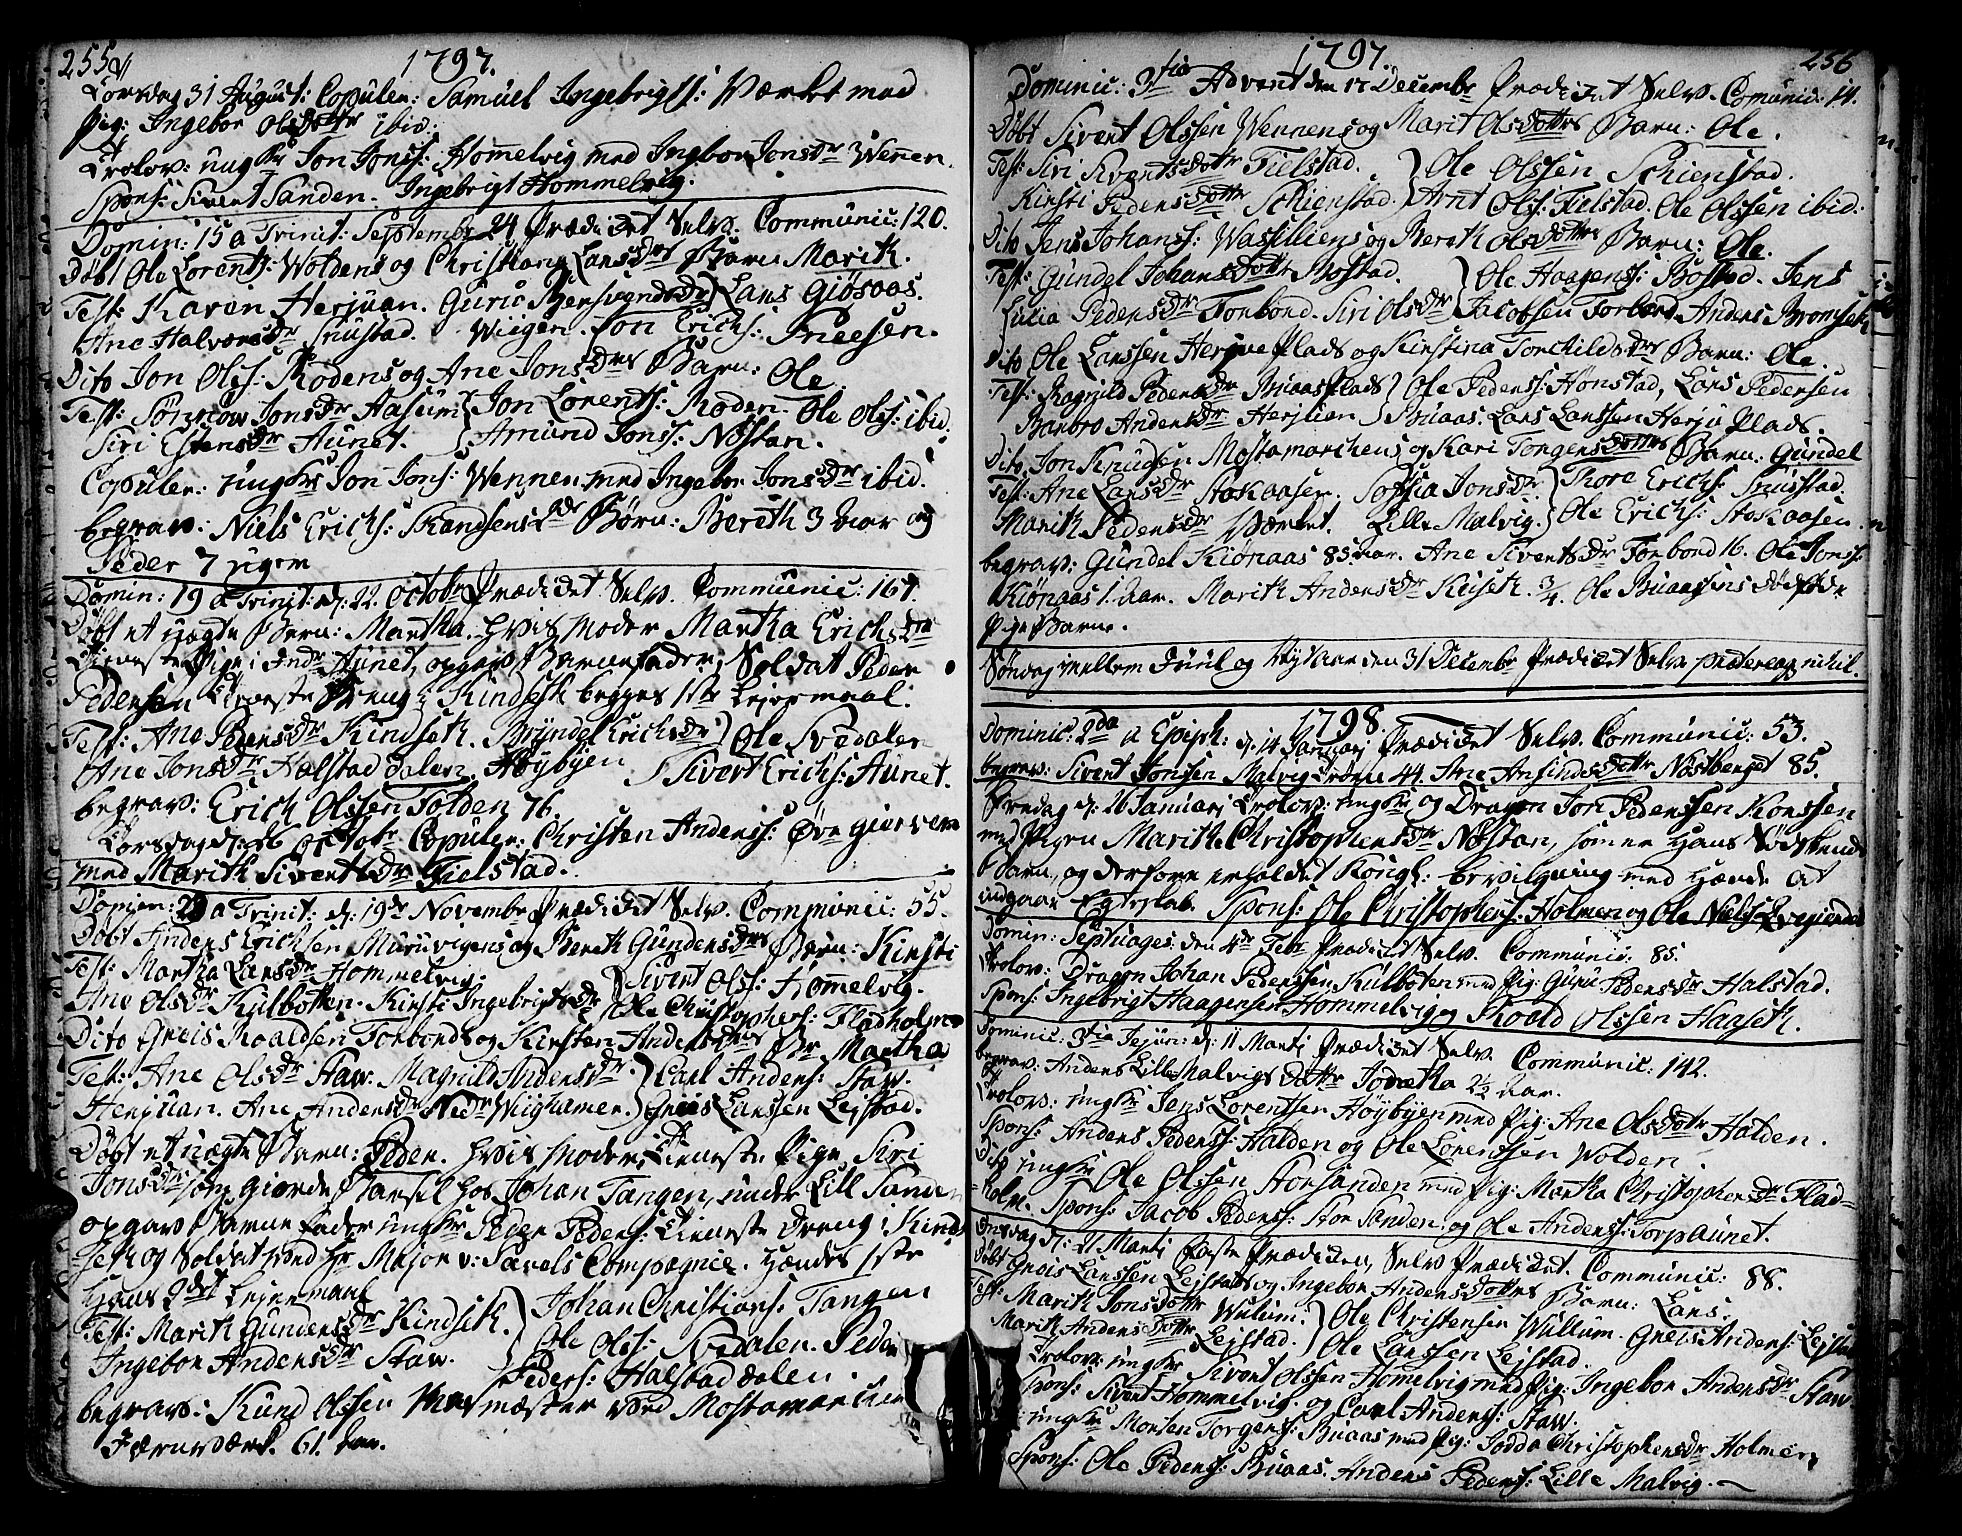 255
1797.
Torsdag 31 August: Copuler: Samuel Ingebrigts: Værket med
Pig: Ingebor Olsdottr ibid:
Trolov: ungkr Jon Jonss: Hommelvig med Ingbor Jonsdr Wennen.
Spons: Sivert Sanden. Ingebrigt Hommelvig.
Domin: 15 a Trinit: Septembr 24 Prædicet Selv. Communic: 120.
Døbt Ole Lorents: Woldens og Christian Larsdrs Barn Marith.
Test: Karen Herjuan. Guru Bersvendsdr Lars Giøsaas.
Ane Halvorsdr Snustad. Wiigen. Jon Erichs: Sneesen.
Dito Jon Olss: Rodens og Ane Jonsdrs Barn: Ole.
Test: Sønnow Jonsdr Aasum Jon Lorents: Roden. Ole Ols: ibid:
Siri Estensdr Aunet. Amund Jons: Nøstan.
Copuler: ungkr Jon Jons: Wennen med Ingebor Jonsdr ibid.
begrav: Niels Erichs: Børn: Bereth 3 Aar og
Peder 7 uger
Domin: 19 a Trinit: d: 22 octobr Prædicet Selv. Communic: 167.
Døbt et uægte Barn: Martha. hvis Moder Martha Erichsdr
tieneste Pige i Indr Aunet, opgav Barnefader, Soldat Peder
Pedersen tieneste Dreng i Kindseth begges 1ste Leiermaal.
Test: Ane Pedersdr Kindseth. Bryndel Erichsdr Ole Svedalen
Ane Jonsdr Halstad dalen. Høybyen Sivert Erichs: Aunet.
begrav: Erich Olssen Solden 76.
Torsdag d: 26 octobr Copuler: Christen Anderss: Øvr Giervan
med Marith Sivertsdr Fielstad.
Domin: 23 a Trinit: d: 19de Novembr Prædicet Selv. Communic: 55.
Døbt Anders Erichsen Muruvigens og Bereth Gundersdrs Barn: Kirsti
Test: Martha Larsdr Hommelvig. Sivert Olss: Homelvig.
Ane Olsdr Kulbotten. Kirsti Ingebrigtsdr Ole Christophers: Fladholm
Dito Greis Roaldsen Forbords og Kirsten Andersdtrs Br Martha
Test: Ane Olsdr Staw. Magnild Andersdr. Carl Anders: Staw.
Herjuan. Ane Andersdr Nedr Wiighamer. Greis Larssen Lejstad.
Døbt et uægte Barn: Peder. hvis Moder tieneste Pige Siri
Jonsdr som giorde Barsel hos Johan Tangen, under Lill Sanden
opgav Barne fader ungkr Peder Peders: tieneste Dreng i Kind
seth og Soldat ved Hr Major v: Savels Compagnie. hendes 1ste
hans 2det Leiermaal
Test: Marith Gundersdr Kindseth. Johan Christians: Tangen
Ingebor Andersdr Staw. Ole Olss: Svedalen. Peder
Peders: Halstaddalen.
begrav: Knud Olssen mæster ved Mostamarchen
Jernværk. 61. Aar.

1797.
256
Dominic: 3tia Advent den 17 Decembr Prædicet Selv. Comunic: 14.
Døbt Sivert Olssen Wennens og Marit Olsdottrs Barn: Ole.
Test: Siri Sivertsdottr Fielstad. Ole Olssen Schienstad.
Kirsti Pedersdottr Schienstad. Arnt Olss: Fielstad. Ole Olssen ibid:
Dito Jens Johanss: Wasilliens og Bereth Olsdottrs Barn: Ole.
Test: Gundel Johansdottr Bostad. Ole Haagenss: Bostad. Jens
Lucia Pedersdr Forbord. Siri Olsdr Jacobsen Forbord. Anders Bromseth
Dito Ole Larssen Herjue Plads og Kirstina Torchildsdr Barn: Ole.
Test: Ragnild Pedersdr Buaas Plads Ole Pederss: Hønstad, Lars Pedersen
Barbro Andersdr Herjuen Buaas. Lars Larssen Herju Plads.
Dito Jon Knudsen Mostamarchens og Kari Torgersdottrs Barn: Gundel
Test: Ane Larsdr Stokaasen. Sophia Jonsdr Thore Erichs: Snustad
Marith Pedersdr Værket. Lille Malvig. Ole Erichs: Stokaasen.
begrav: Gundel Kiønaas 85 Aar. Ane Sivertsdr Forbord 16. Ole Jons:
Kiønaas 1. Aar. Marith Andersdr Kuseth 3/4. Ole Buaasens dødfødde
Pige Barn.
Søndag mellem Juul og Nytaar den 31 Decembr Prædicet Selv. præterea nihil.
1798.
Dominic: 2da a Epiph: d: 14 Januarj Prædicet Selv. Communic: 53.
begrav: Sivert Jonsen Malvig 44. Ane Amundsdottr Nøstberget 85.
Fredag d: 26 Januarj Trolov: ungkr og Dragon Jon Pederssen Korssen
med Pigen Marith Christophersdr Nøstan, som er hans Sødskende
barn, og derfore erholdet Kongl: bevilgning med hende at
indgaae Egteskab. Spons: Ole Christophers: Holmen og Ole Niels:
Domin: Septuages. den 4de Febr Prædicet Selv. Communic: 85.
Trolov: Dragon Johan Pederssen Kulboten med Pig: Guru Pedersdr Halstad.
Spons: Ingebrigt Haagensen Hommelvig og Roald Olssen Haaseth.
Dominic: 3tia Jejun: d: 11 Marti Prædicet Selv. Communic: 142.
begrav: Anders Lille Malvigs dottr 2½ Aar.
Trolov: ungkr Jens Lorentsen Høybyen med Pig: Ane Olsdottr Halden.
Spons: Anders Pederss: Halden og Ole Lorentssen Wolden
Dito ungkr Ole Olssen Storsanden med Pig: Martha Christophersdr Flad-
holm. Spons: Jacob Pederss: Stor Sanden og Ole Anderss: Torpaunet.
Onsdag d: 21 Marti første Prædicken, Selv Prædicet. Communic: 88.
Døbt Greis Larssen Lejstads og Ingebor Andersdottrs Barn: Lars.
Test: Marith Jonsdottr Wulum. Ole Christensen Wullum. Greis Anderss: Lejstad
Marit Andersdottr Lejstad. Ole Larssen Lejstad.
Trolov: ungkr Sivert Olssen Homelvig med Pig: Ingebor Andersdr Staw
Spons: Sivert Hommelvig. og Carl Anderss: Staw.
ungkr Morten Torgerss: Buaas med Pig: Jodda Christophersdr Holmen
Spons: Ole Pederss: Buaas. Anders Pederss: Lille Malvig.